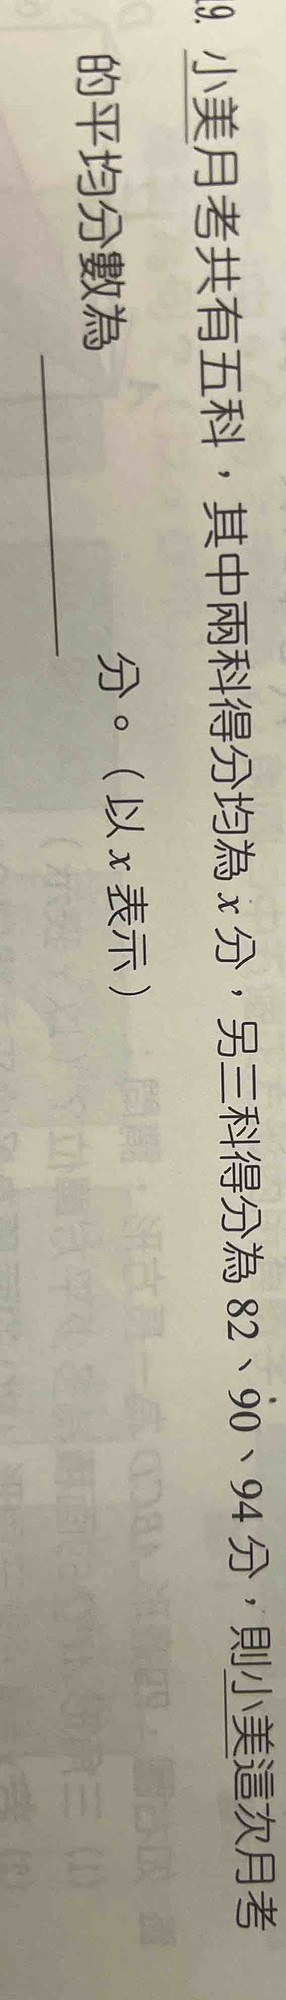 19. 小美月考共有五科，其中兩科得分均為 x 分，另三科得分為 82、90、94 分，則小美這次月考
的平均分數為＿＿＿＿＿＿分。（以 x 表示）